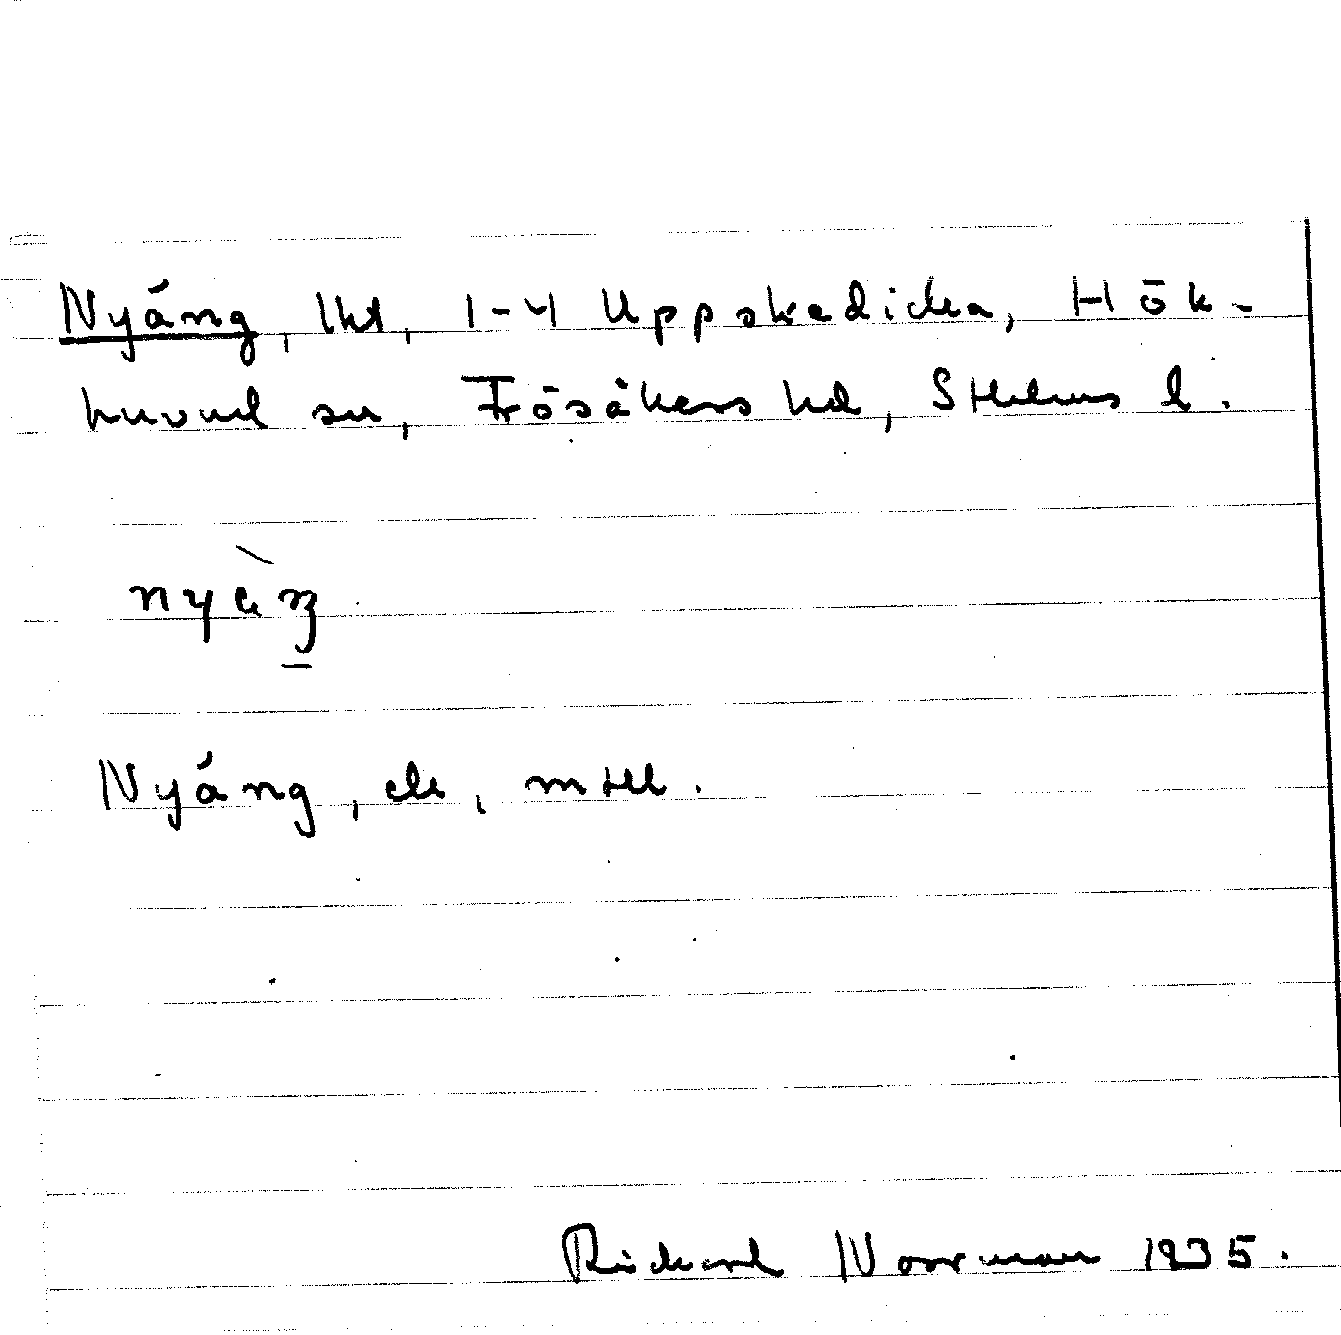 Nyäng, lht, 1-4 Uppskedicka, Hök-
huvud sn, Frösåkers hd, Sthlms l.
Nyäng, ek, mtll.
Rickard Norrman 1935.